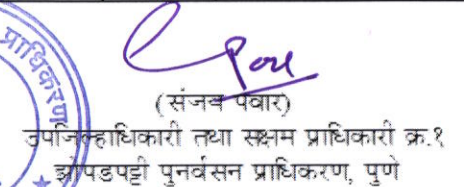 प्राधिकरण
(संजय पवार)
उपजिल्हाधिकारी तथा सक्षम प्राधिकारी क्र.१
झोपडपट्टी पुनर्वसन प्राधिकरण, पुणे